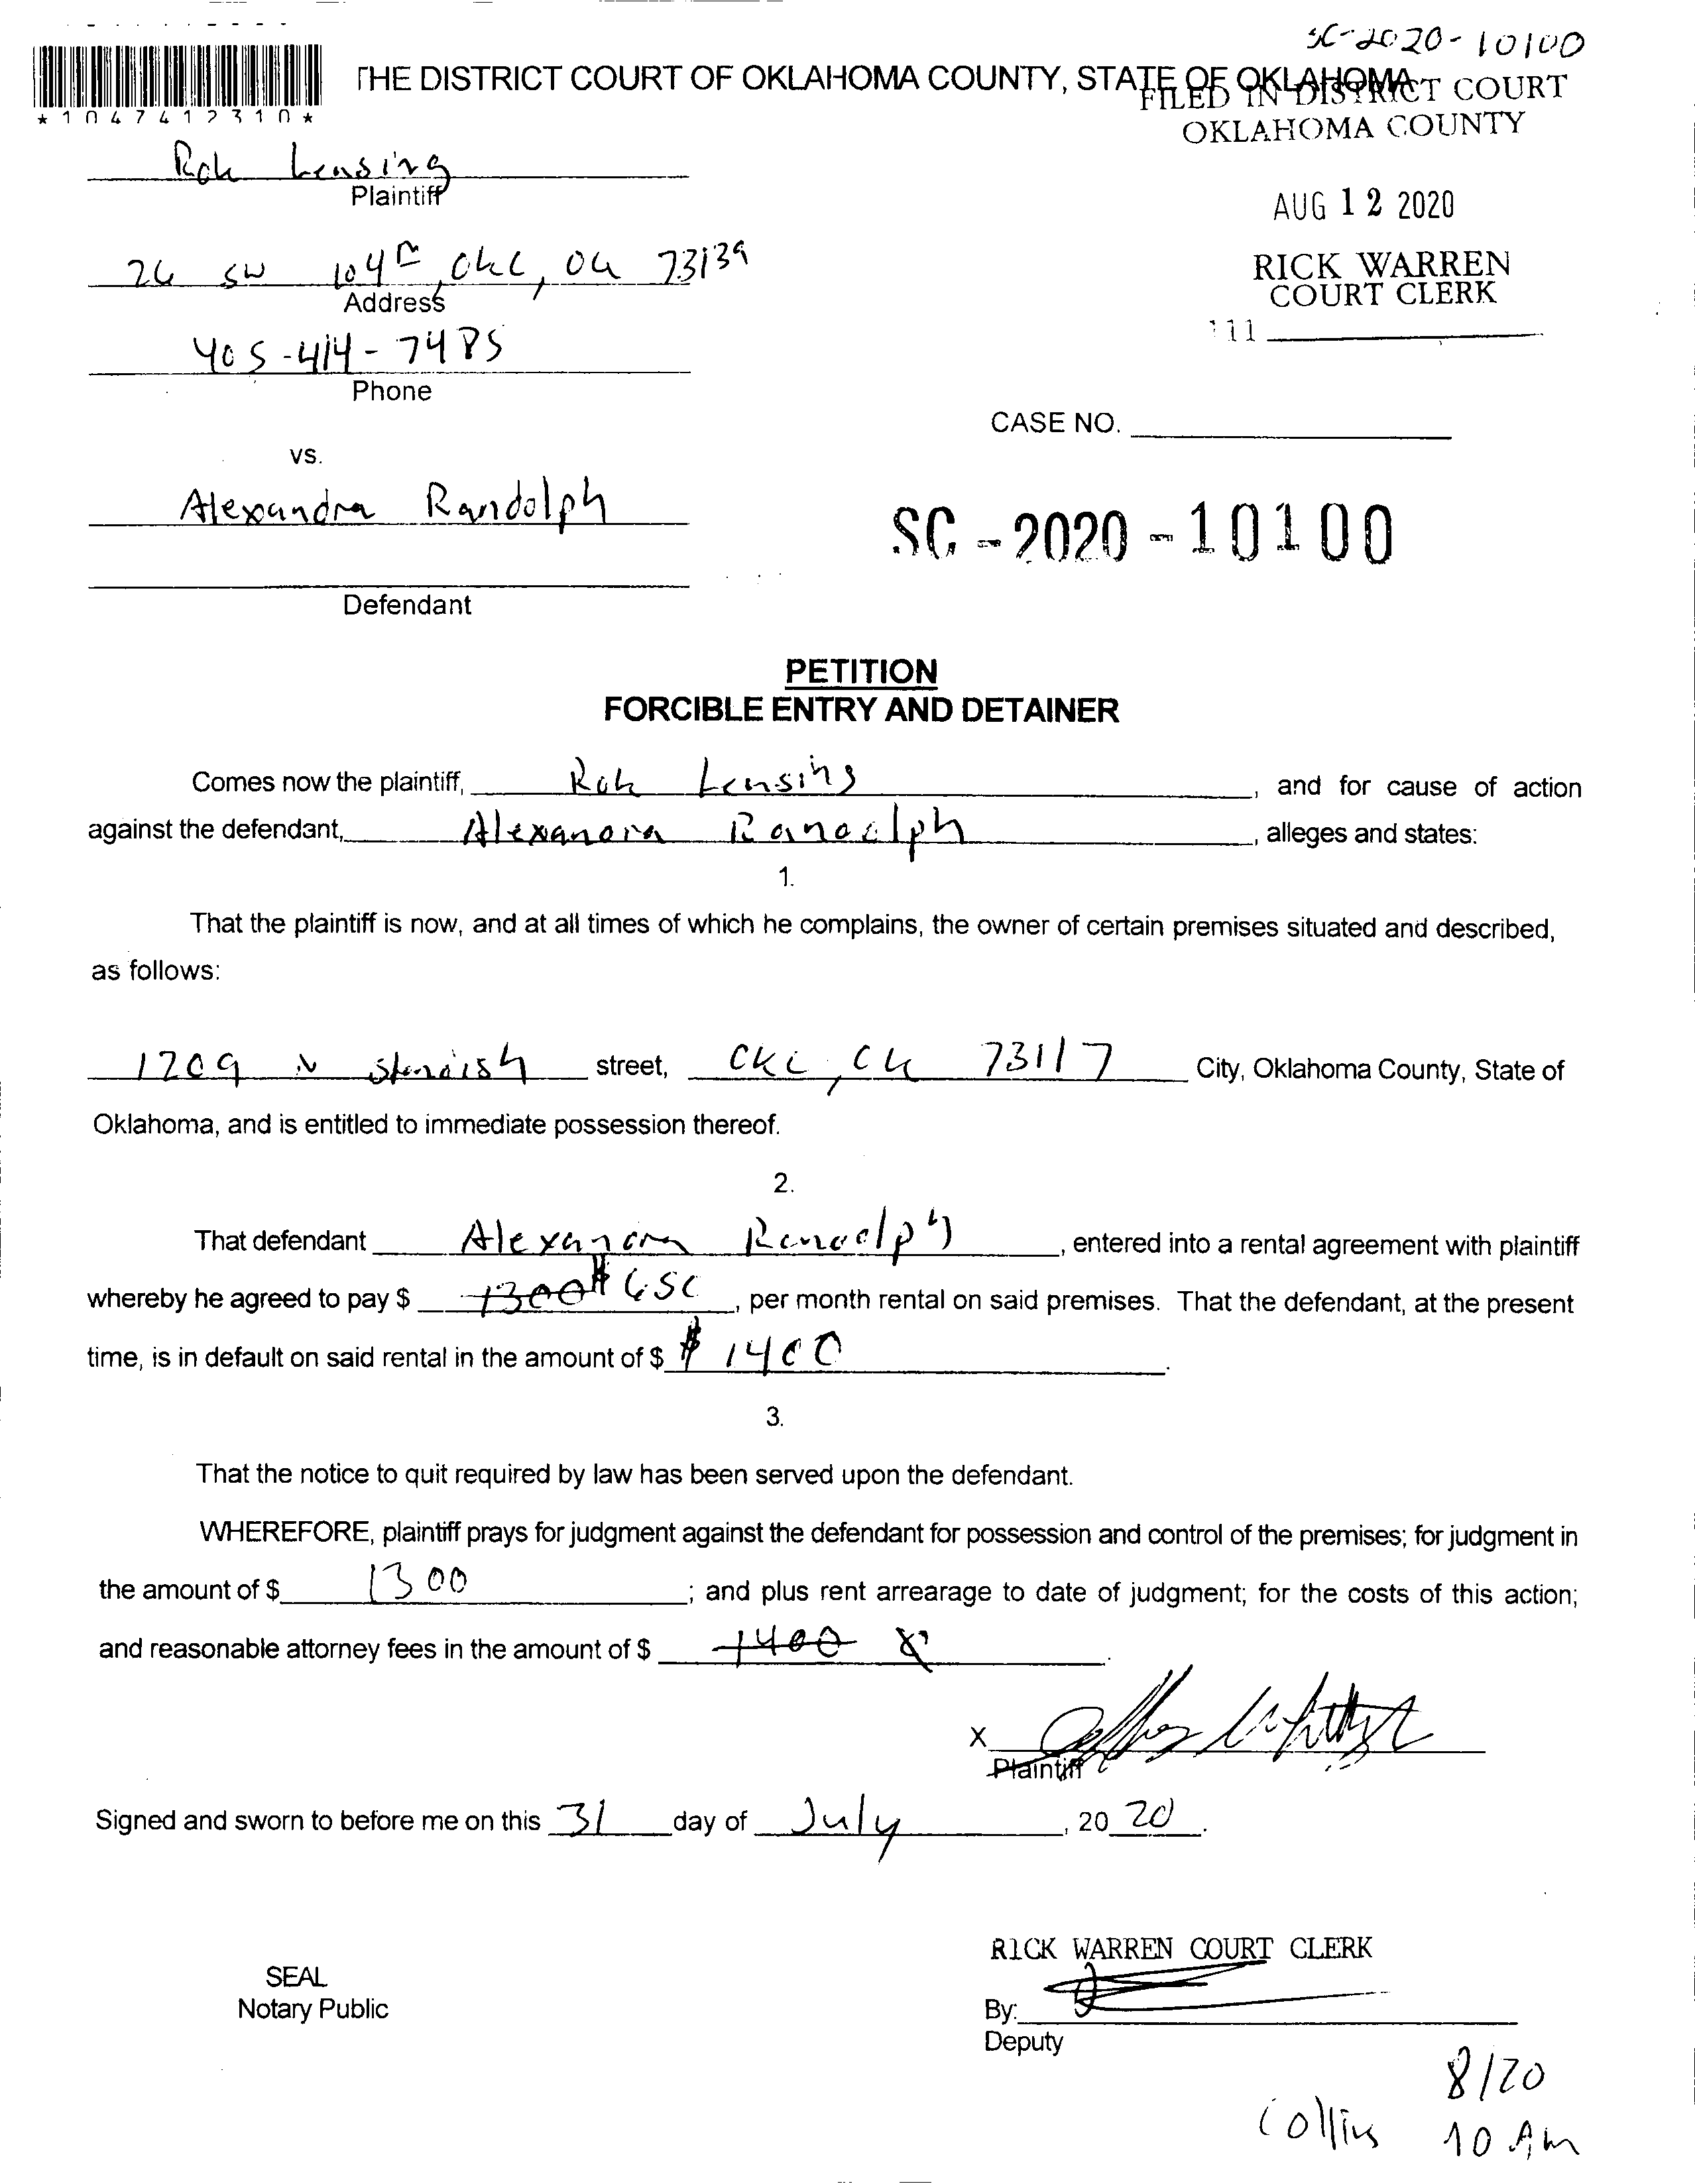 SC-2020-10100
THE DISTRICT COURT OF OKLAHOMA COUNTY, STATE OF OKLAHOMA
FILED IN DISTRICT COURT
OKLAHOMA COUNTY
*1047412310*
Leasing
Plaintiff
AUG 12 2020
26 SW 104th, OKC, OK 73139
Address
RICK WARREN
COURT CLERK
405-414-7485
111
Phone
CASE NO.
vs.
Alexandra Randolph
SC-2020-10100
Defendant
PETITION
FORCIBLE ENTRY AND DETAINER
Comes now the plaintiff, Leasing, and for cause of action
against the defendant, Alexandra Randolph, alleges and states:
1.
That the plaintiff is now, and at all times of which he complains, the owner of certain premises situated and described,
as follows:
1209 N Standish street, OKC, OK 73117 City, Oklahoma County, State of
Oklahoma, and is entitled to immediate possession thereof.
2.
That defendant Alexandra Randolph, entered into a rental agreement with plaintiff
whereby he agreed to pay $ 1300 $650, per month rental on said premises. That the defendant, at the present
time, is in default on said rental in the amount of $ $1400.
3.
That the notice to quit required by law has been served upon the defendant.
WHEREFORE, plaintiff prays for judgment against the defendant for possession and control of the premises; for judgment in
the amount of $ 1300; and plus rent arrearage to date of judgment; for the costs of this action;
and reasonable attorney fees in the amount of $ 1400.
X
Plaintiff
Signed and sworn to before me on this 31 day of July, 20 20.
RICK WARREN COURT CLERK
SEAL
Notary Public
By:
Deputy
8/20
Collins 10 AM